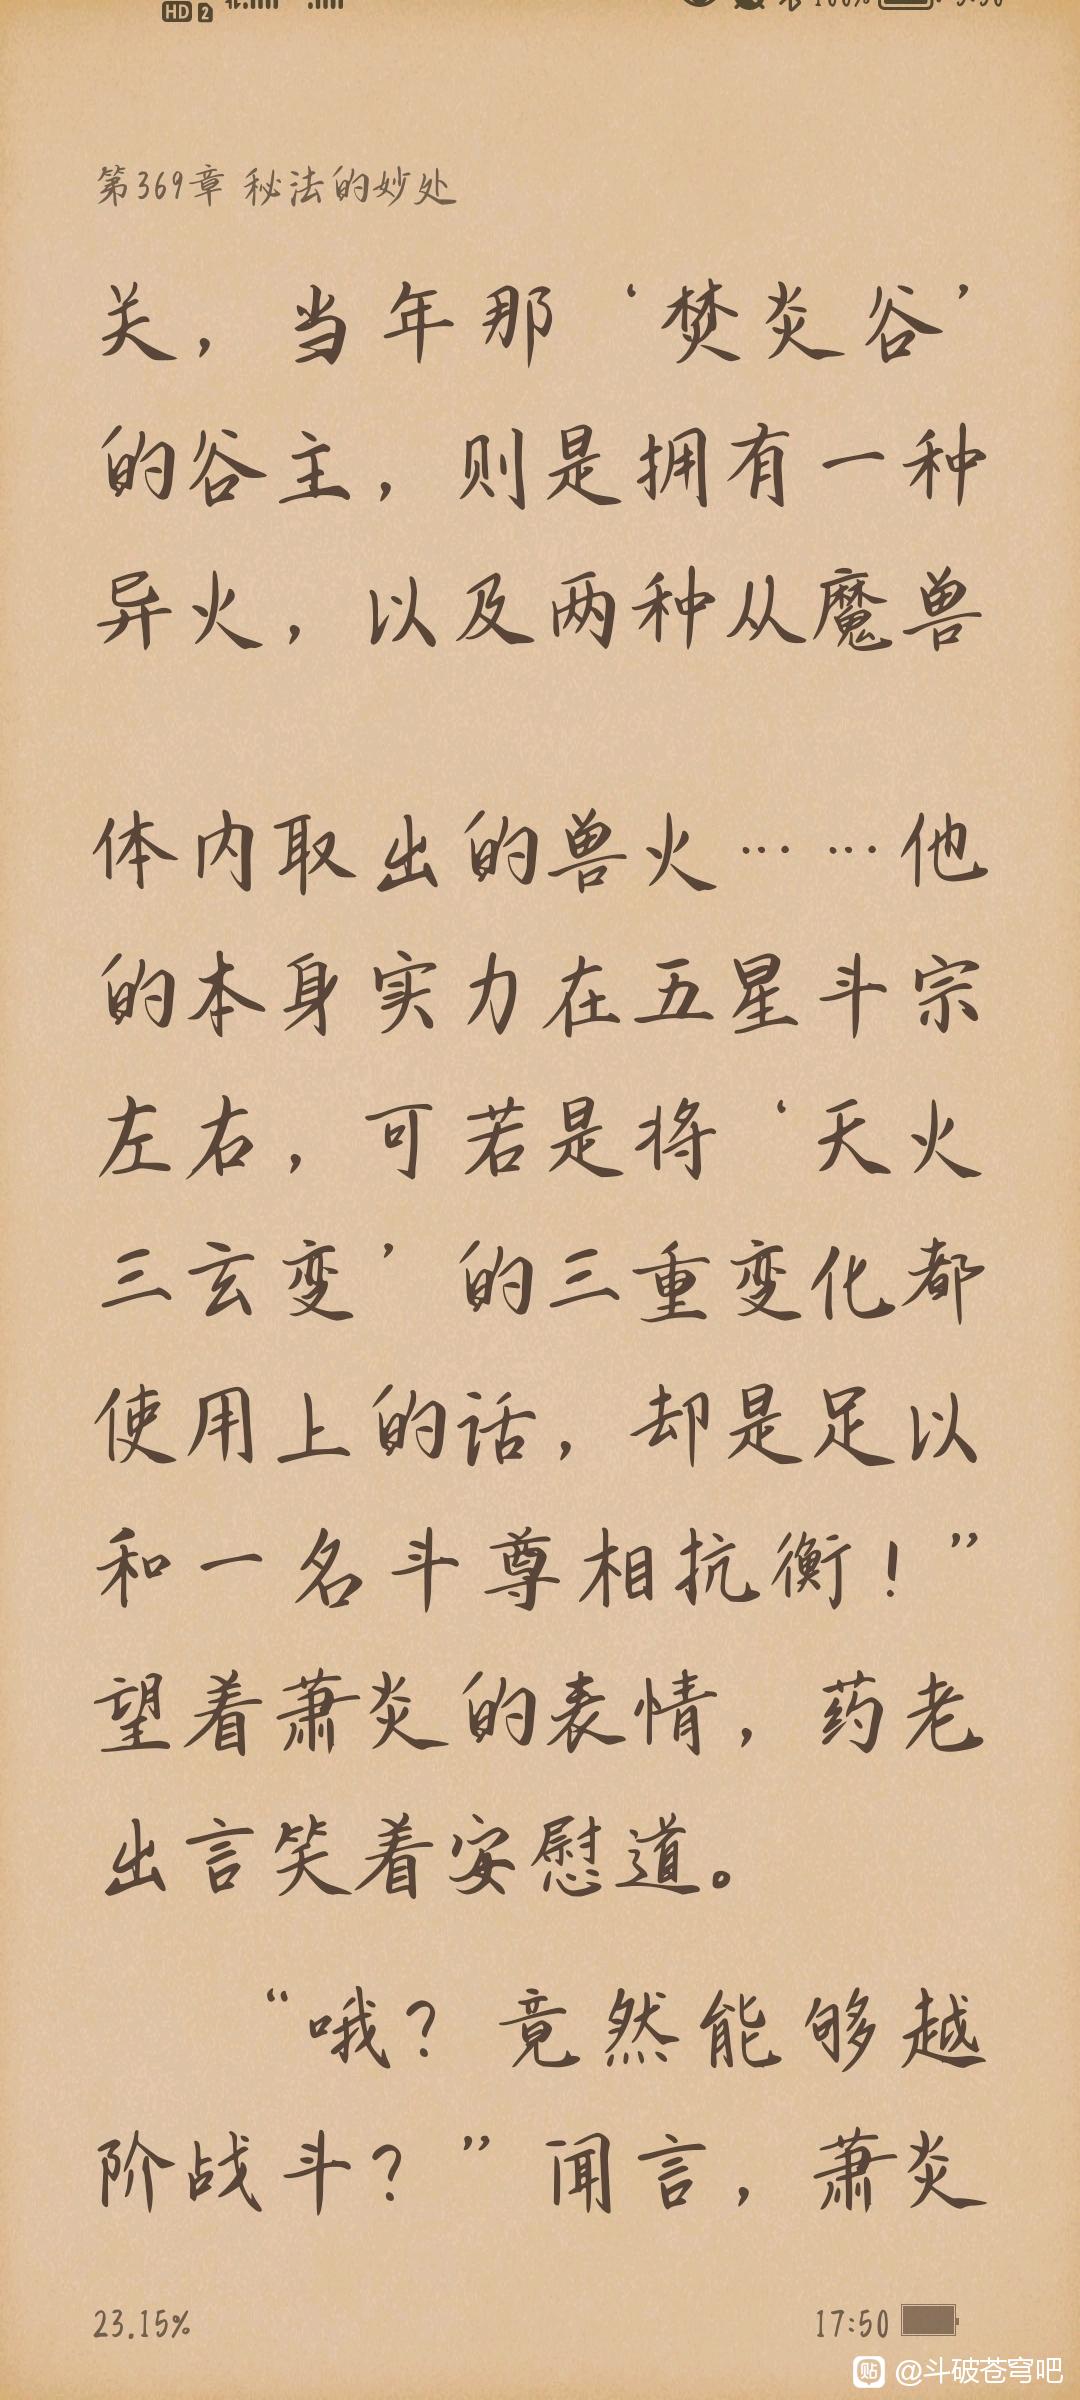 HD 2
100%
第369章 秘法的妙处
关，当年那‘焚炎谷’
的谷主，则是拥有一种
异火，以及两种从魔兽
体内取出的兽火……他
的本身实力在五星斗宗
左右，可若是将‘天火
三玄变’的三重变化都
使用上的话，却是足以
和一名斗尊相抗衡！”
望着萧炎的表情，药老
出言笑着安慰道。
“哦？竟然能够越
阶战斗？”闻言，萧炎
23.15%
17:50
贴 @斗破苍穹吧